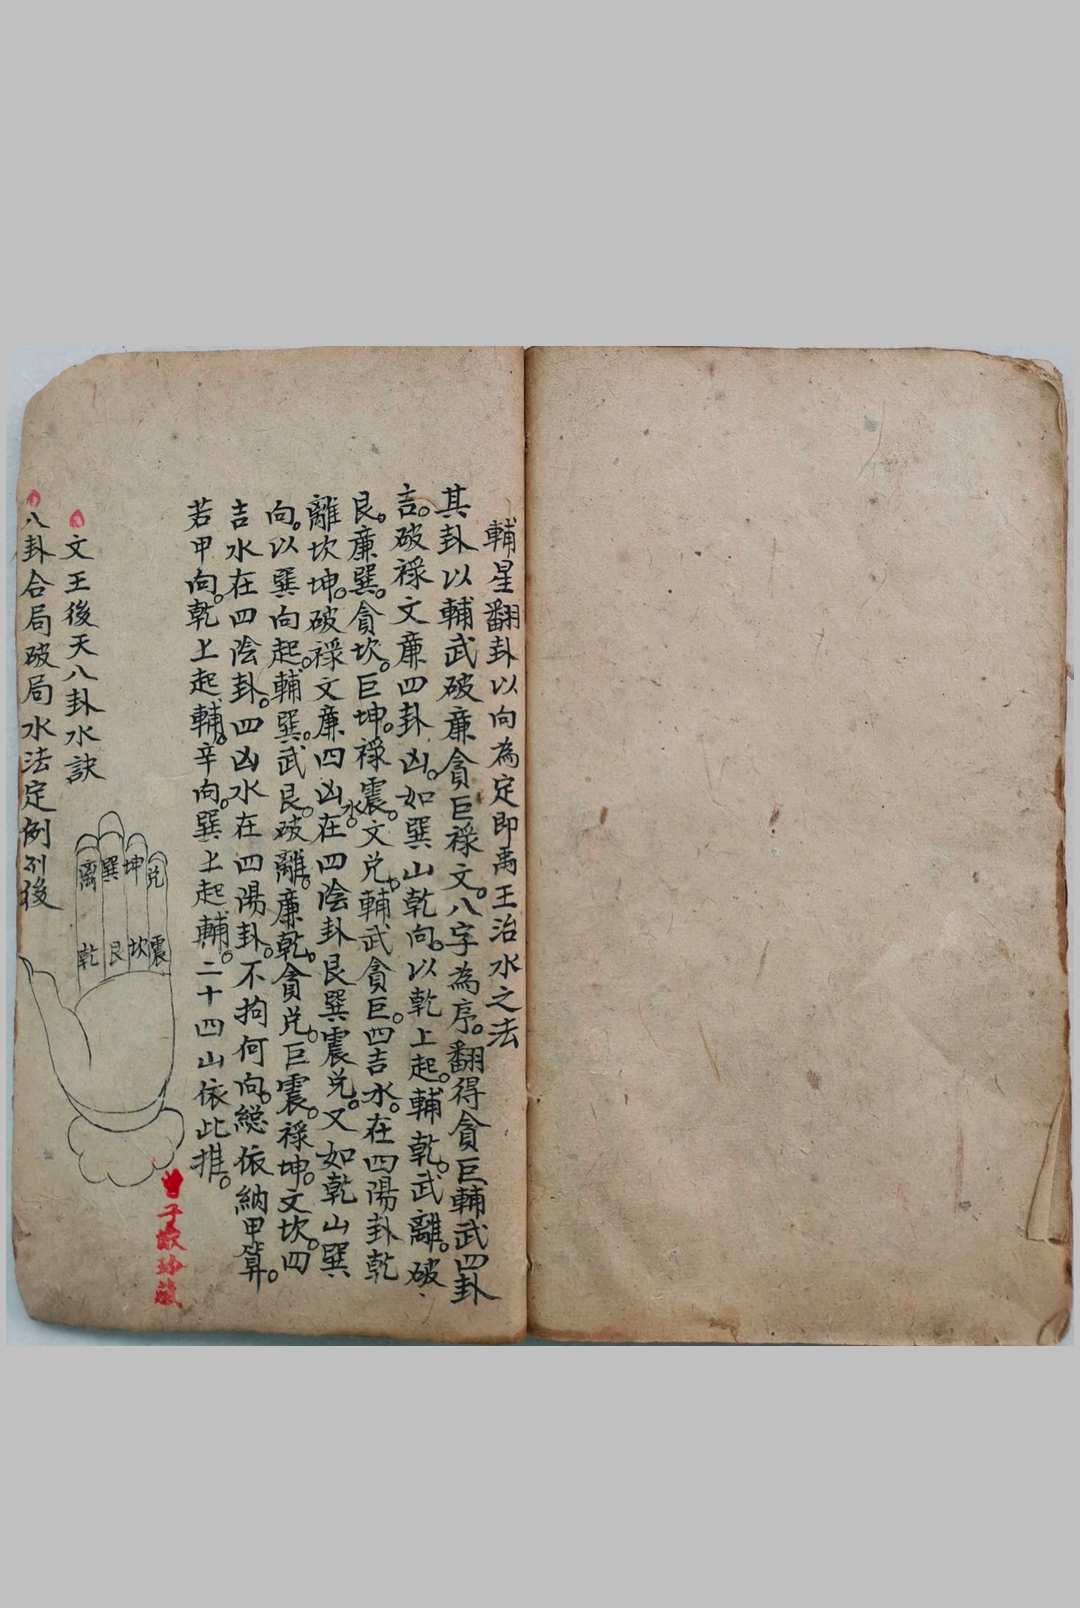 輔星翻卦以向為定即禹王治水之法
其卦以輔武破廉貪巨祿文。八字為序。翻得貪巨輔武四卦
吉。破祿文廉四卦凶。如巽山乾向。以乾上起。輔乾。武離。破
艮。廉巽。貪坎。巨坤。祿震。文兌。輔武貪巨。四吉水。在四陽卦乾
離坎坤。破祿文廉四凶水。在四陰卦艮巽震兌。又如乾山巽
向。以巽向起。輔巽。武艮。破離。廉乾。貪兌。巨震。祿坤。文坎。四
吉水在四陰卦。四凶水在四陽卦。不拘何向。總依納甲算。
若甲向。乾上起輔。辛向。巽上起輔。二十四山依此推。
文王後天八卦水訣
兌
坤
巽
离
震
坎
艮
乾
曾子敬珍藏
八卦合局破局水法定例列後